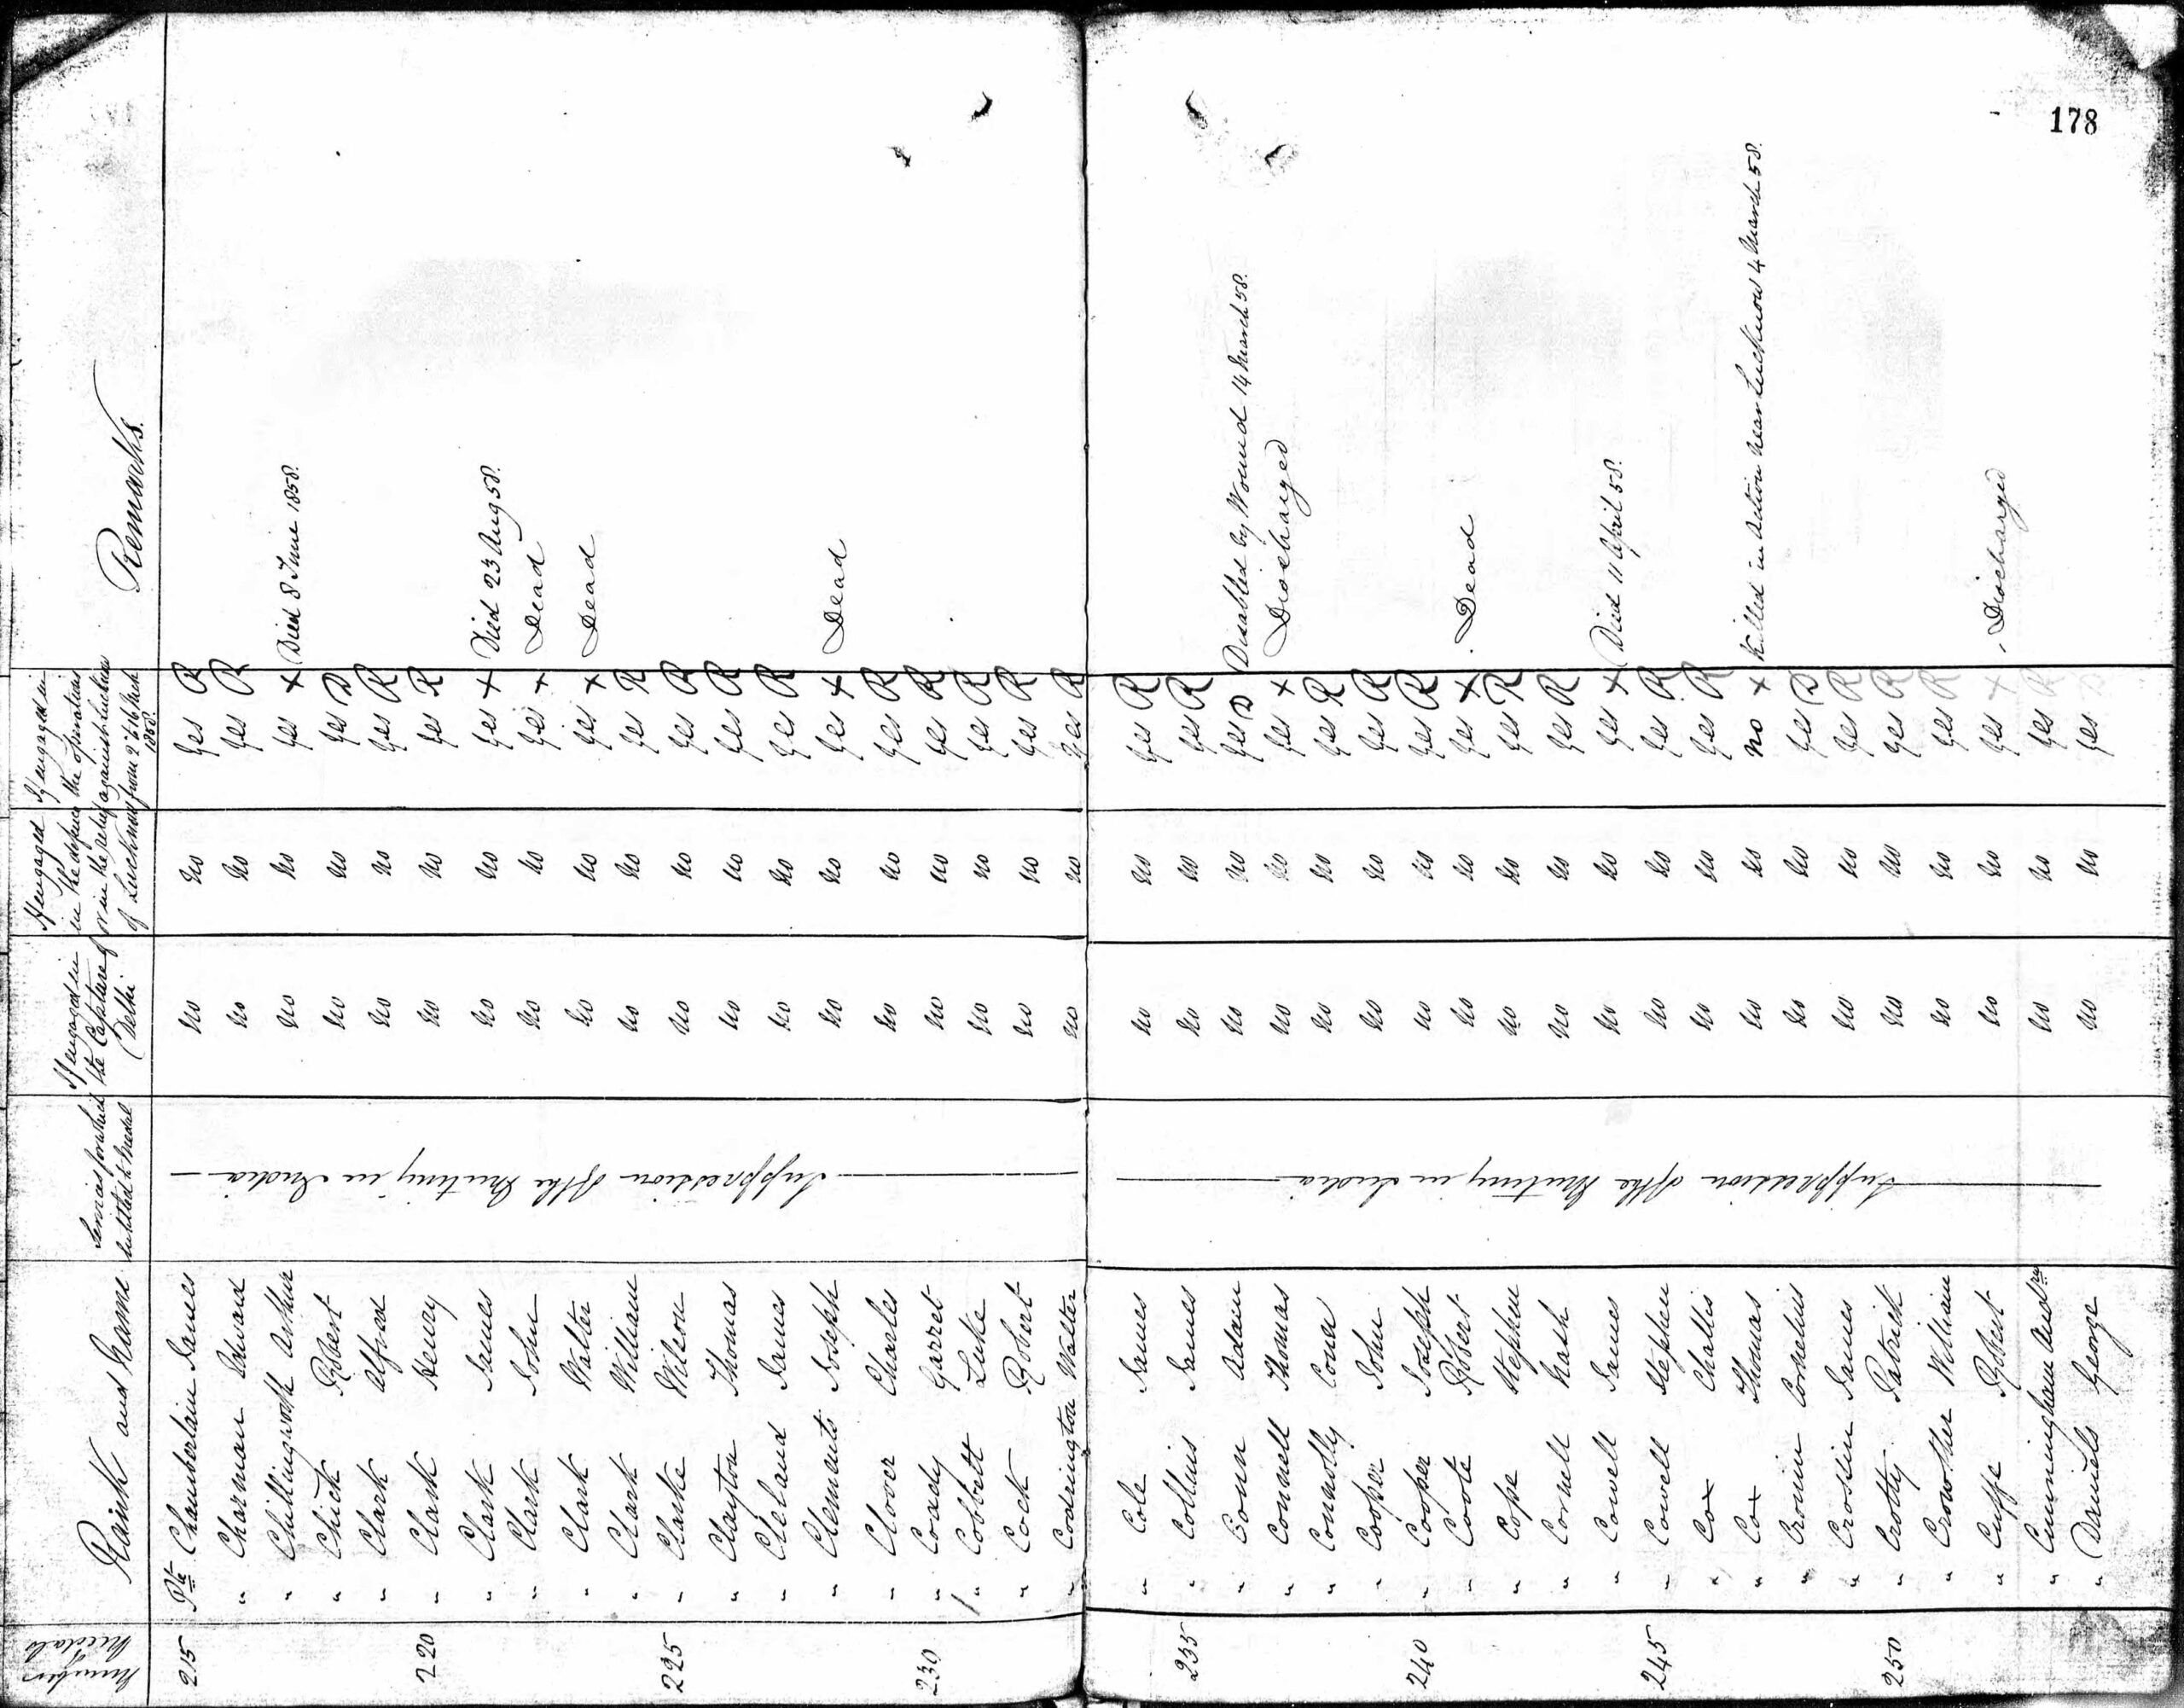 178
Numbers of Medals | Rank and Name | Services for which entitled to Medal | If engaged in the Capture of Delhi | If engaged in the defence or in the relief of Lucknow | If engaged in the operations against Lucknow from 2 to 16 March 1858 | Remarks.
Suppression of the Mutiny in India
215 Pte Chamberlain James no no yes R
" Charman Edward no no yes R
" Chillingworth Arthur no no yes x Died 8 June 1858.
" Chick Robert no no yes D
" Clark Alfred no no yes R
220 " Clark Henry no no yes R
" Clark James no no yes x Died 23 Aug 58.
" Clark John no no yes x Dead
" Clark Walter no no yes x Dead
" Clark William no no yes R
225 " Clarke Wilson no no yes R
" Clayton Thomas no no yes R
" Cleland James no no yes R
" Clements Joseph no no yes x Dead
" Clover Charles no no yes R
230 " Coady Garret no no yes R
/ " Cobbett Luke no no yes R
" Cock Robert no no yes R
" Codrington Walter no no yes R
Suppression of the Mutiny in India
" Cole James no no yes R
235 " Collins James no no yes R
" Conn Adam no no yes D Disabled by Wound 14 March 58.
" Connell Thomas no no yes x Discharged
" Connolly Conn no no yes R
" Cooper John no no yes R
240 " Cooper Joseph no no yes R
" Coote Robert no no yes x Dead
" Cope Stephen no no yes R
" Cornell Nash no no yes R
" Cowell James no no yes x Died 11 April 58.
245 " Cowell Stephen no no yes R
" Cox Challis no no yes R
" Cox Thomas no no no x Killed in Action near Lucknow 4 March 58.
" Cronin Cornelius no no yes D
" Crossin James no no yes R
250 " Crotty Patrick no no yes R
" Crowther William no no yes R
" Cuffe Robert no no yes x Discharged
" Cunningham Andrw no no yes R
" Daniels George no no yes